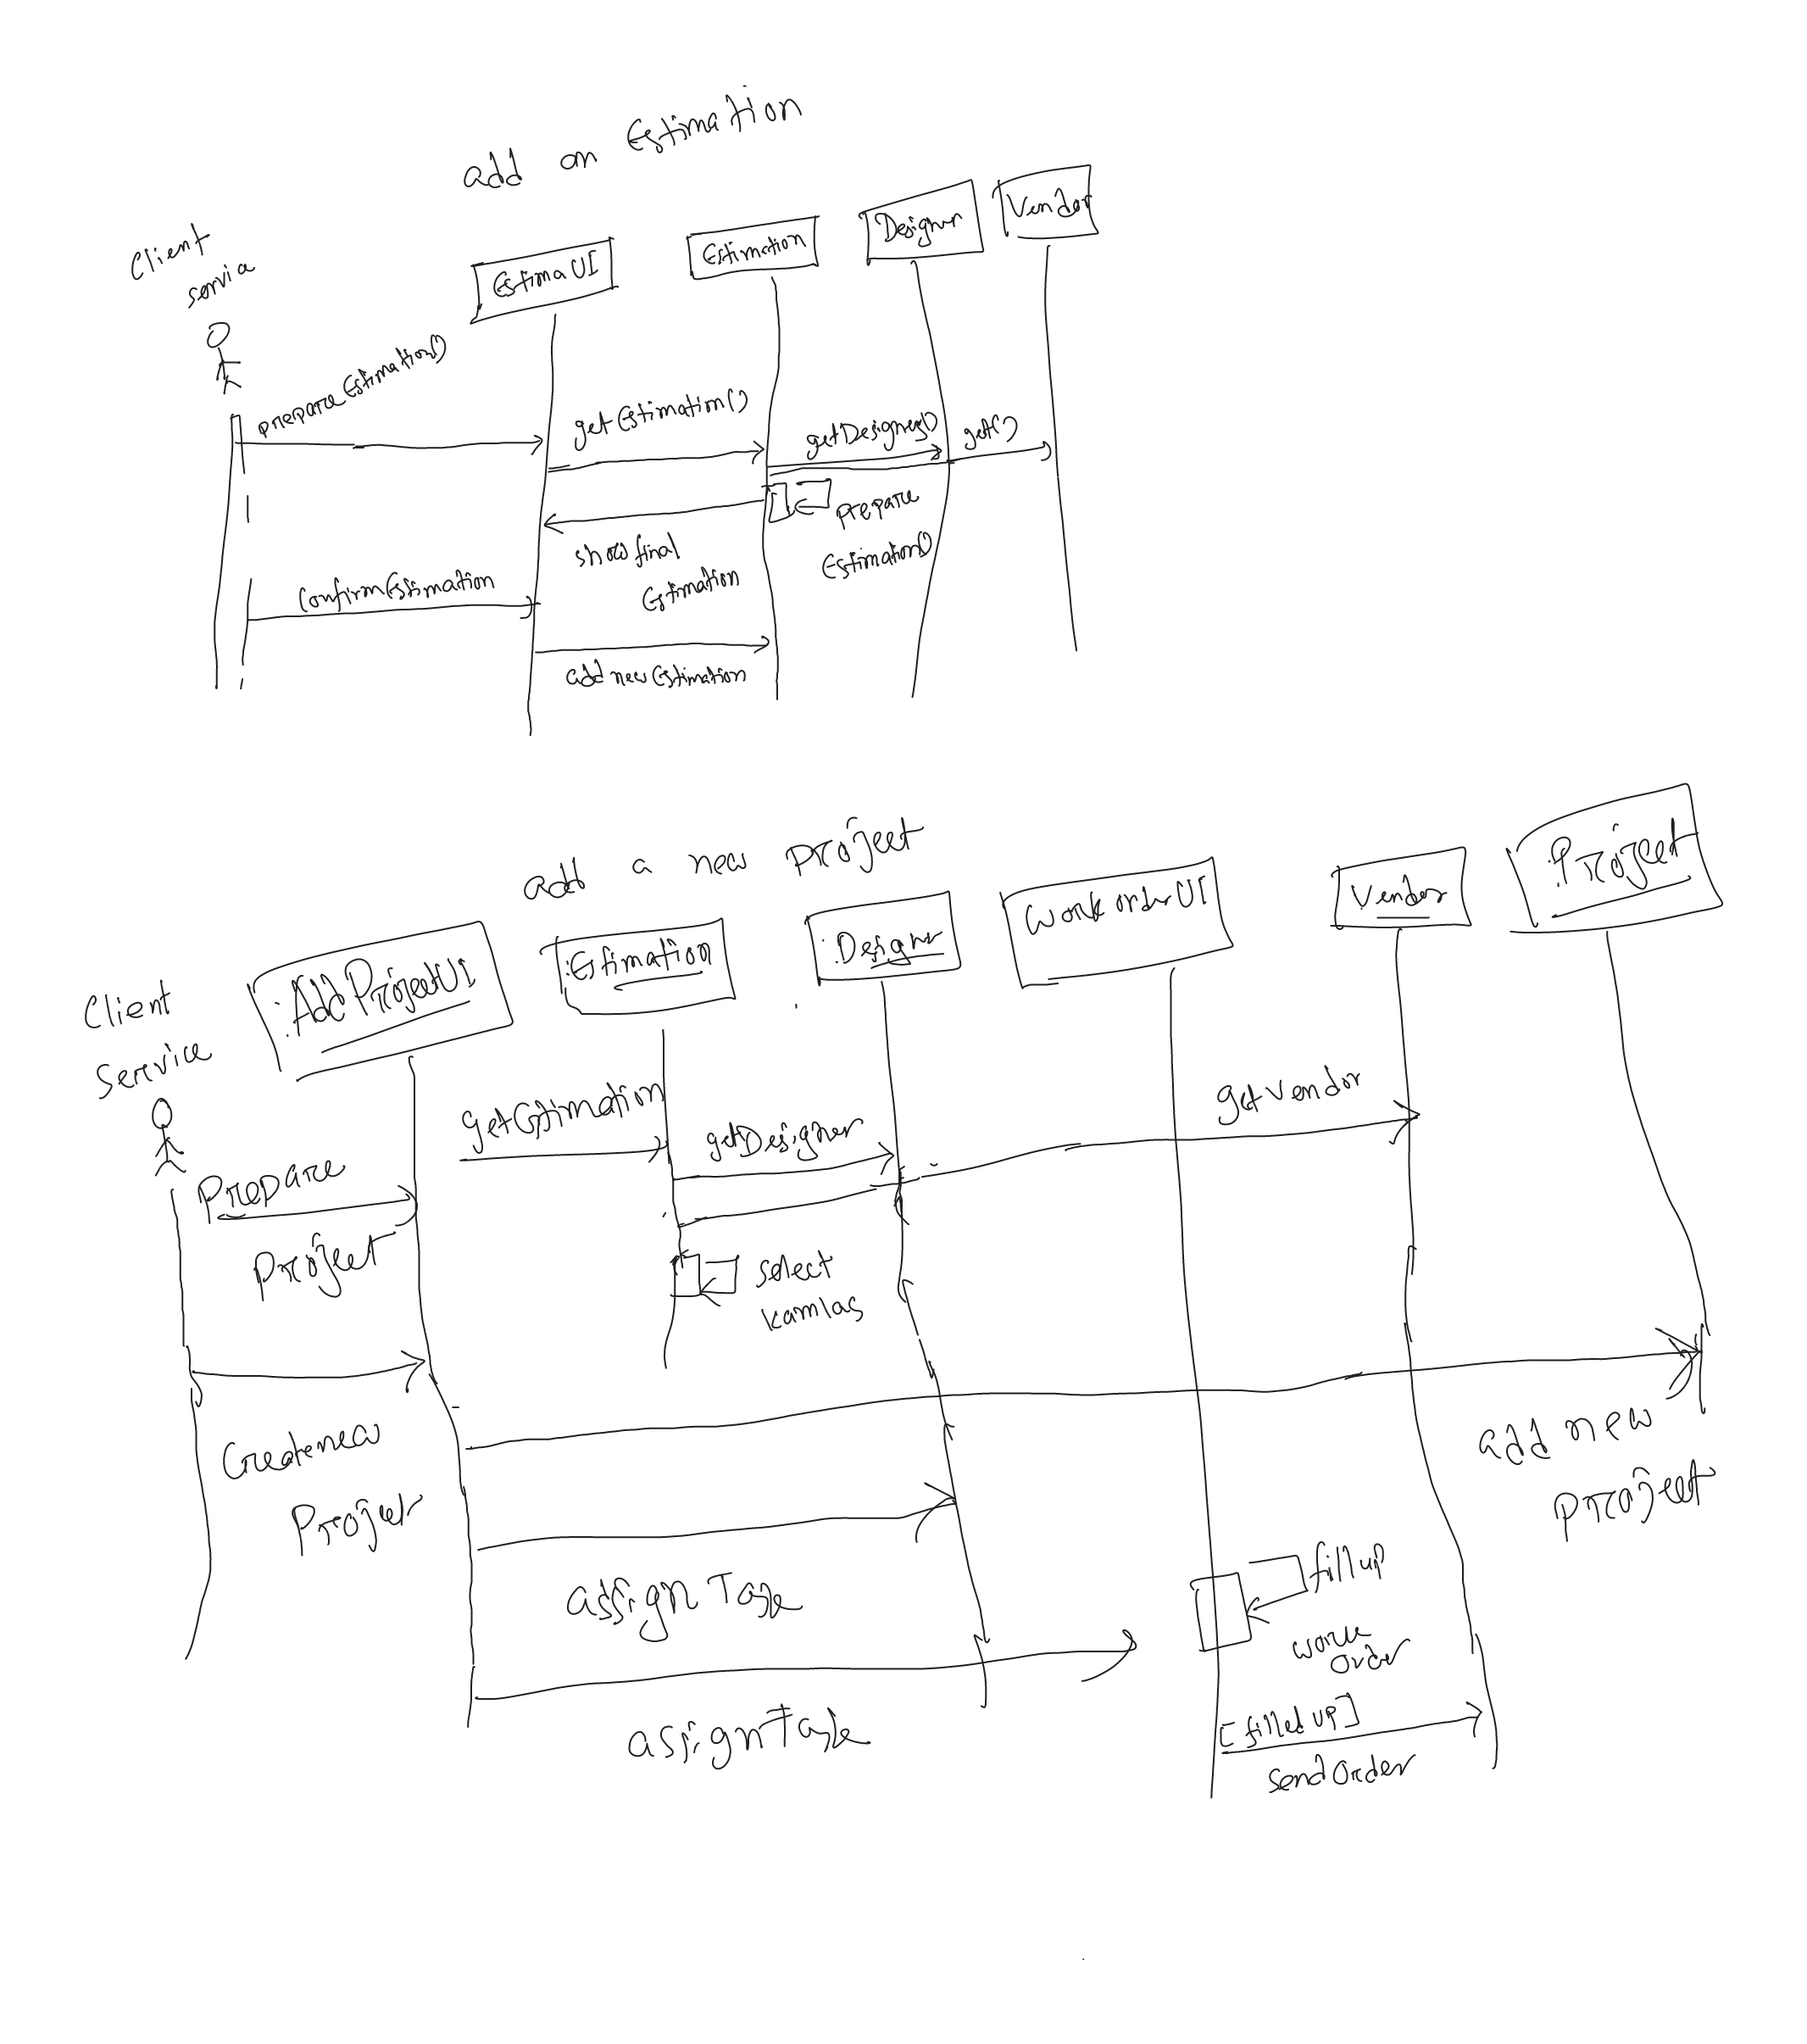 add an Estimation
Client
servia
EstimaUI
Estimation
Designer
Vendor
prepareEstimation()
getEstimation()
getDesigner()
get()
prepare
Estimation()
show final
Estimation
ConfirmEstimation
add new Estimation
add a new project
Client
Service
:AddProjectUI
:Estimation
:Designer
Work orderUI
Vendor
:Project
getEstimation
getDesigner
getvendor
Prepare
Project
select
Create new
Project
add new
project
assign Task
fillup
work
order
assignTask
[filled up]
sendOrder